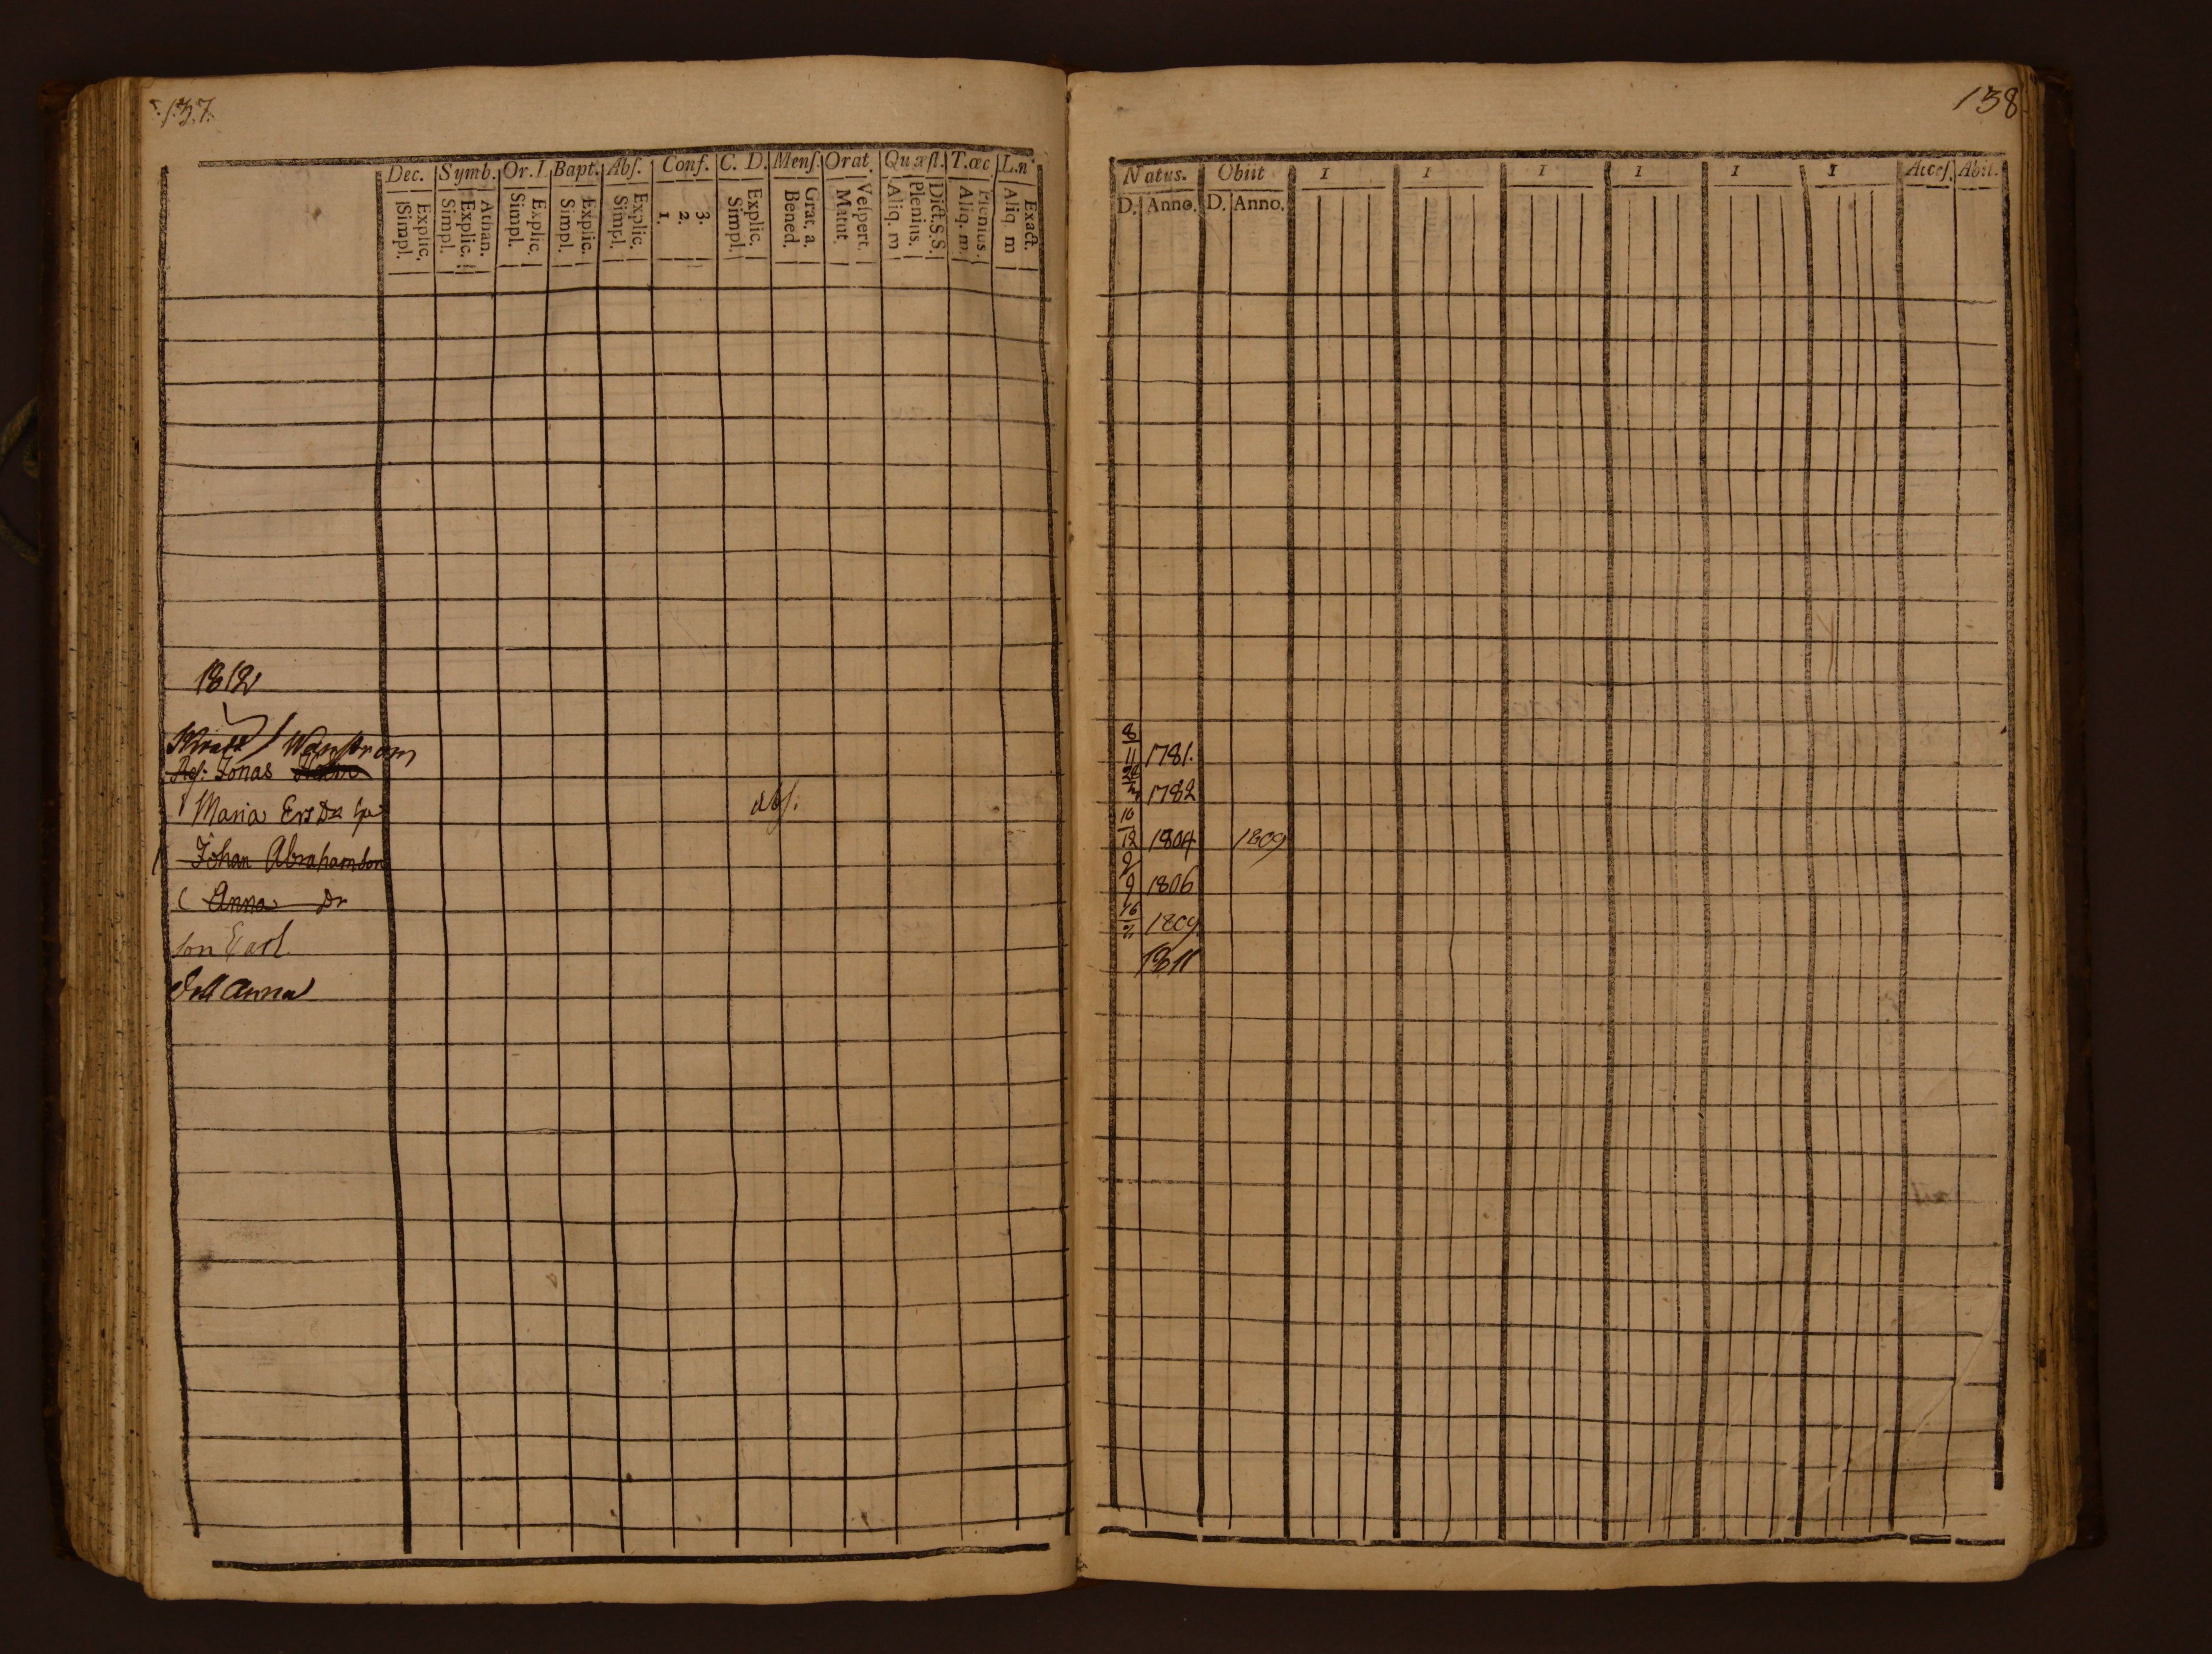 137.
Dec. Symb. Or. I. Bapt. Abſ. Conf. C. D. Menſ. Orat. Quæſt. T. œc. L. n
Explic. Simpl. Athan. Explic. Simpl. Explic. Simpl. Explic. Simpl. Explic. Simpl. 3. 2. 1. Explic. Simpl. Grat. a. Bened. Veſpert. Matut. Dict. S. S. Plenius. Aliq. m Plenius. Aliq. m. Exact. Aliq m
1812
Wanstrom
Jonas
Maria Ers Dr abſ.
Johan Abrahamson
Anna Dr
son Carl
Anna
138
Natus. Obiit I I I I I I Acceſ. Abit.
D. Anno. D. Anno.
8/11 1781.
1782
10/12 1804 1809
9/9 1806
16 1809
1811